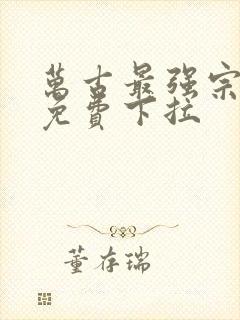 萬古最强宗
免費下拉
董存瑞